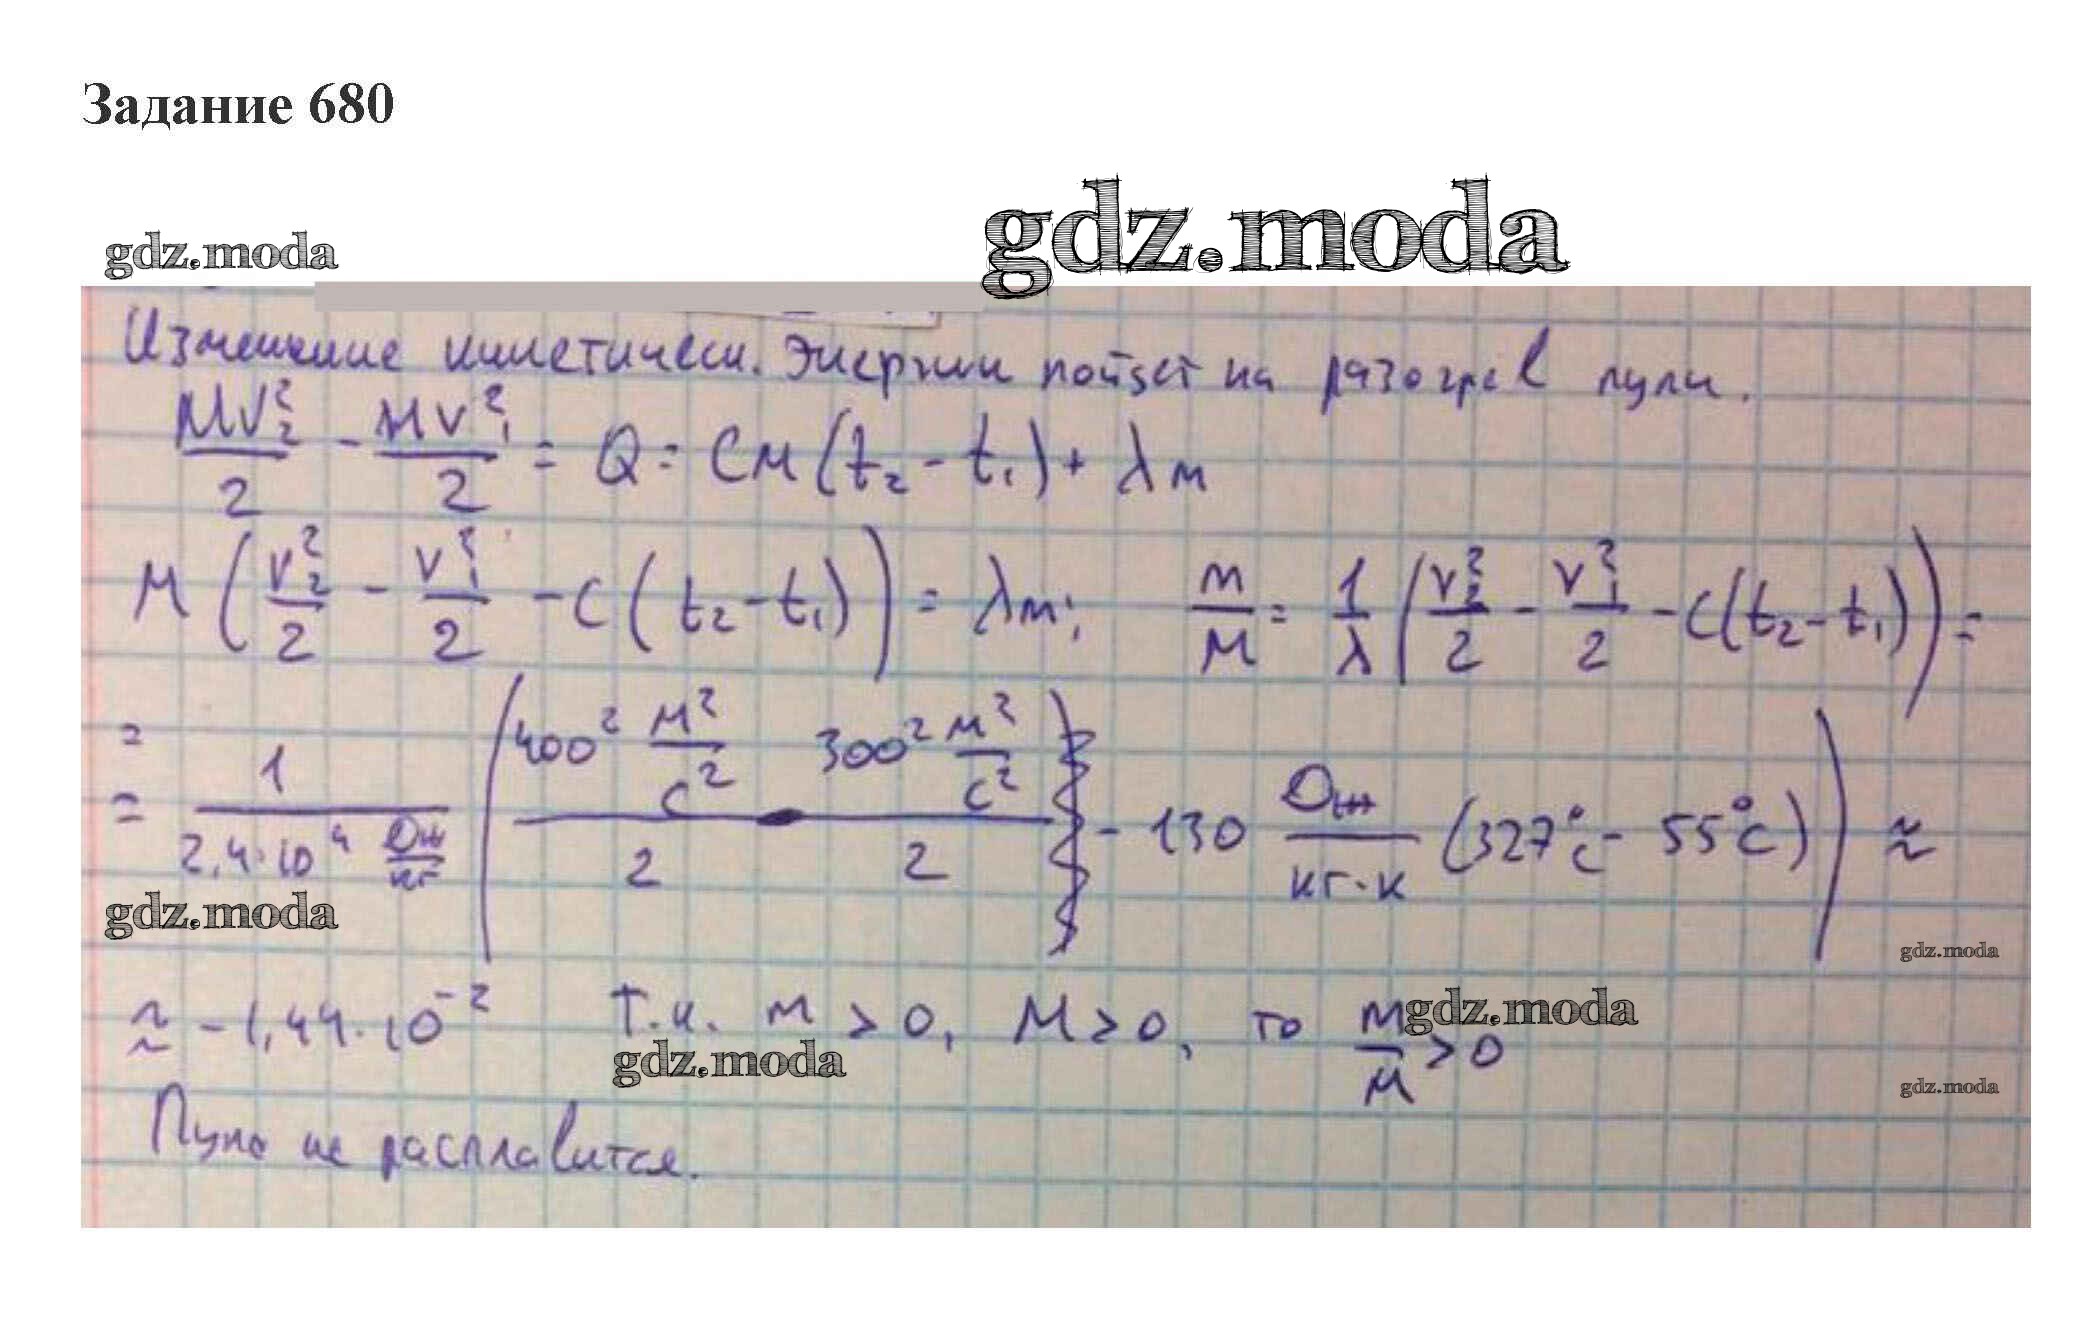 Задание 680
gdz.moda
gdz.moda
Изменение кинетическ. Энергии пойдет на разогрев пули.
MV₂²/2 - MV₁²/2 = Q = CM(t₂ - t₁) + λm
M(V₂²/2 - V₁²/2 - C(t₂ - t₁)) = λm; m/M = 1/λ (V₂²/2 - V₁²/2 - C(t₂ - t₁)) =
= 1/(2,4·10⁴ Дж/кг) (400² м²/с² / 2 - 300² м²/с² / 2 - 130 Дж/(кг·К) (327°C - 55°C)) ≈
gdz.moda
gdz.moda
≈ -1,44·10⁻² Т.к. m > 0, M > 0, то m/M > 0
gdz.moda
gdz.moda
gdz.moda
Пуля не расплавится.